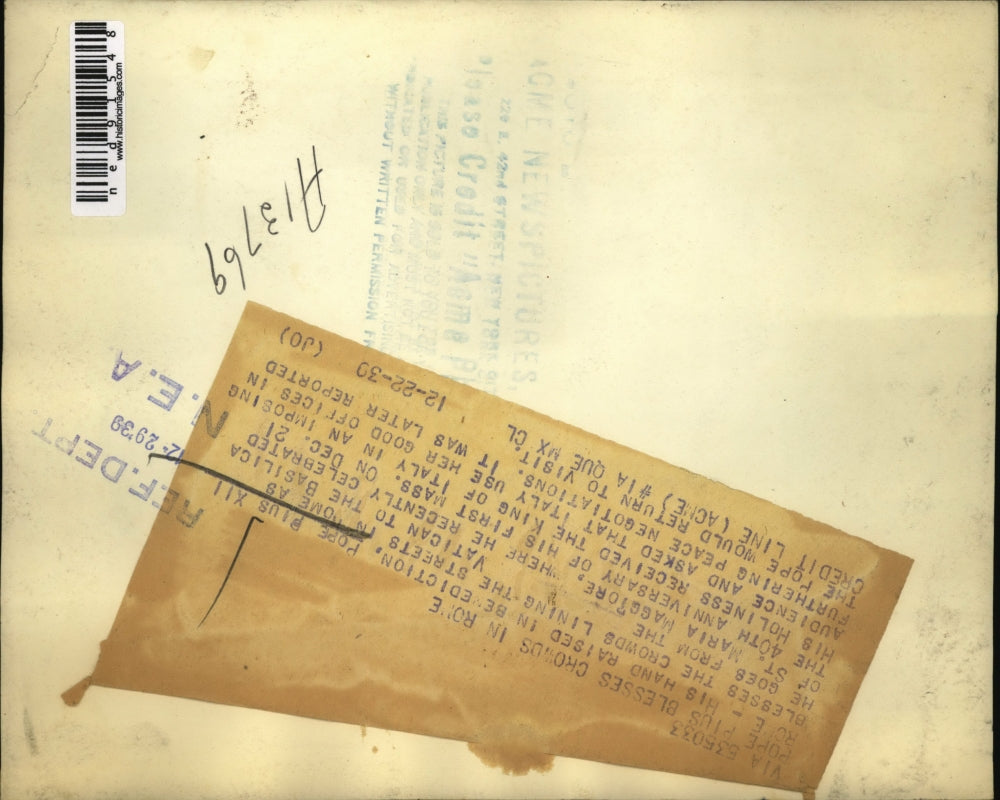 ned91548
www.historicimages.com
A13769
ACME NEWSPICTURES,
220 E. 42nd STREET, NEW YORK
Please Credit "Acme
THIS PICTURE IS SOLD TO YOU FOR
PUBLICATION ONLY AND MUST NOT
OR USED FOR
WITHOUT WRITTEN PERMISSION
REF. DEPT
12-29'39
N.E.A
VIA 535033
POPE PIUS BLESSES CROWDS IN ROME
ROME - HIS HAND RAISED IN BENEDICTION, POPE PIUS XII
BLESSES THE CROWDS LINING THE STREETS, IN ROME AS
HE GOES FROM THE VATICAN TO THE BASILICA
OF ST. MARIA MAGGIORE, WHERE HE RECENTLY CELEBRATED
THE 40TH ANNIVERSARY OF HIS FIRST MASS. ON DEC. 21
HIS HOLINESS RECEIVED THE KING OF ITALY IN AN IMPOSING
AUDIENCE AND ASKED THAT ITALY USE HER GOOD OFFICES IN
FURTHERING PEACE NEGOTIATIONS. IT WAS LATER REPORTED
THE POPE WOULD RETURN TO VISIT.
CREDIT LINE (ACME) #IA QUE MX CL 12-22-39 (JO)